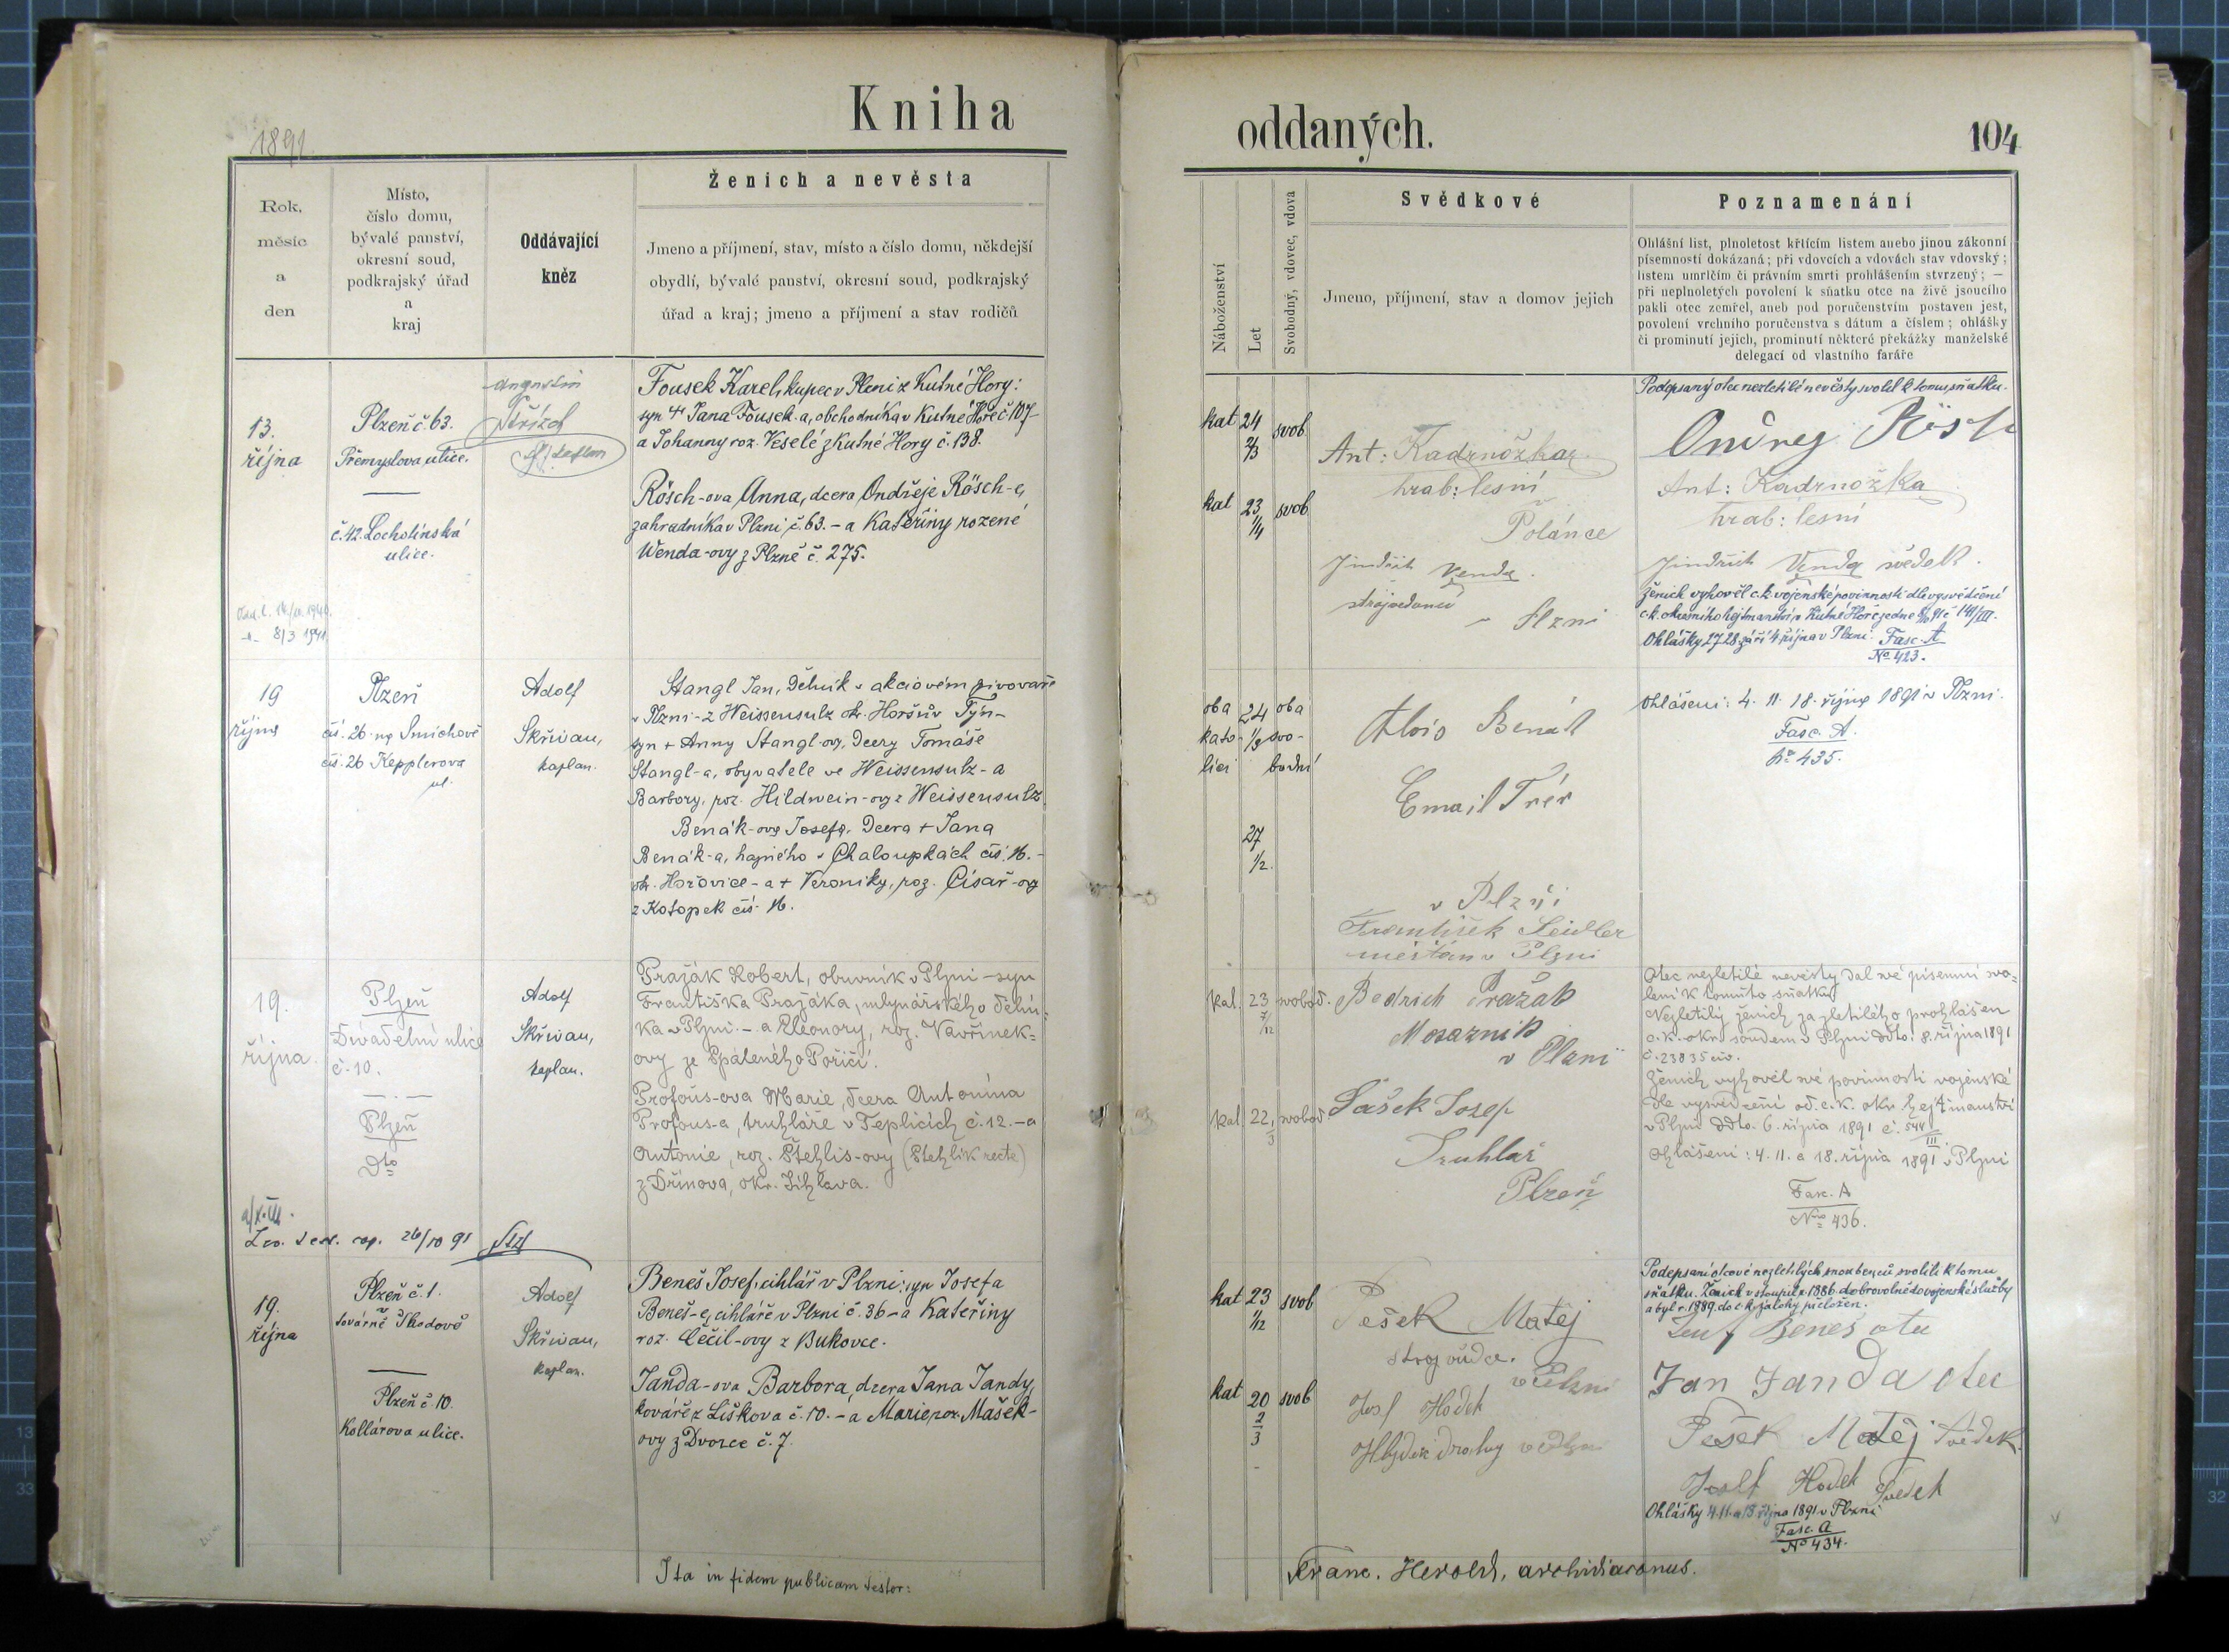 Kniha
1891
Rok,
měsíc
a
den
Místo,
číslo domu,
bývalé panství,
okresní soud,
podkrajský úřad
a
kraj
Oddávající
kněz
Ženich a nevěsta
Jmeno a příjmení, stav, místo a číslo domu, někdejší
obydlí, bývalé panství, okresní soud, podkrajský
úřad a kraj; jmeno a příjmení a stav rodičů
13.
října
Plzeň č. 63.
Přemyslova ulice.
č. 42. Lochotínská
ulice.
Augustin
Fousek Karel, kupec v Plzni z Kutné Hory:
syn + Jana Fousek-a, obchodníka v Kutné Hoře č 107-
a Johanny roz. Veselé z Kutné Hory č. 138.
Rösch-ova Anna, dcera Ondřeje Rösch-e,
zahradníka v Plzni č. 63. - a Kateřiny rozené
Wenda-ovy z Plzně č. 275.
8/3 1941
19
října
Plzeň
čís. 26 na Smíchově
čís. 26 Kepplerova
ul.
Adolf
Skřivan,
kaplan.
Stangl Jan, dělník v akciovém pivovaře
v Plzni - z Weissensulz okr. Horšův Týn -
syn + Anny Stangl-ovy, dcery Tomáše
Stangl-a, obyvatele ve Weissensulz - a
Barbory, roz. Hildwein-ovy z Weissensulz
Benák-ova Josefa, dcera + Jana
Benák-a, hajného v Chaloupkách čís. 16. -
okr. Hořovice - a + Veroniky, roz. Císař-ovy
z Kotopek čís. 16.
19.
října
Plzeň
Divadelní ulice
č. 10.
Plzeň
dto
Adolf
Skřivan,
kaplan.
Pražák Robert, obuvník v Plzni - syn
Františka Pražáka, mlynářského dělní-
ka v Plzni. - a Eleonory, roz. Vavřinek-
ovy ze Spáleného Poříčí.
Profous-ova Marie, dcera Antonína
Profous-a, truhláře v Teplicích č. 12. - a
Antonie, roz. Štehlis-ovy (Stehlík recte)
z Dřínova, okr. Jihlava.
26/10 91
19.
října
Plzeň č. 1.
továrně Škodově
Plzeň č. 10.
Kollárova ulice.
Adolf
Skřivan,
kaplan.
Beneš Josef, cihlář v Plzni; syn Josefa
Beneš-e, cihláře v Plzni č. 36 - a Kateřiny
roz. Cečil-ovy z Bukovce.
Janda-ova Barbora, dcera Jana Jandy,
kováře z Liškova č. 10. - a Marie roz. Mašek-
ovy z Dvorce č. 7.
Ita in fidem publicam testor:
oddaných.
104
Náboženství
Let
Svobodný, vdovec, vdova
Svědkové
Jmeno, příjmení, stav a domov jejich
Poznamenání
Ohlášní list, plnoletost křtícím listem anebo jinou zákonní
písemností dokázaná; při vdovcích a vdovách stav vdovský;
listem umrlčím či právním smrti prohlášením stvrzený; —
při neplnoletých povolení k sňatku otce na živě jsoucího
pakli otec zemřel, aneb pod poručenstvím postaven jest,
povolení vrchního poručenstva s dátum a číslem; ohlášky
či prominutí jejich, prominutí některé překážky manželské
delegací od vlastního faráře
kat 24 2/3 svob
kat 23 1/4 svob
Ant: Kadrnožka
hrab: lesní
v
Polánce
Jindřich Venda
strojvedoucí
v Plzni
Podepsaný otec nezletilé nevěsty svolil k tomu sňatku.
Ondřej Rösch
Ant: Kadrnožka
hrab: lesní
Jindřich Venda svědek.
ženich vyhověl c.k. vojenské povinnosti dle vysvědčení
c.k. okresního hejtmanství v Kutné Hoře
Ohlášky 27 28 září 4 října v Plzni. Fasc. A
No 423.
oba
kato-
lici
24
1/3
oba
svo-
bodní
27
1/2.
Alois Benák
Email Trér
v Plzni
František Seidler
měšťan v Plzni
Ohlášeni: 4. 11. 18. října 1891 v Plzni.
Fasc. A.
No 435.
kat. 23 7/12 svobod.
kat. 22 1/3 svobod.
Bedrich Pražak
Mosaznik
v Plzni
Sašek Josef
Truhlař
Plzeň
Otec nezletilé nevěsty dal své písemní svo-
lení k tomuto sňatku
Nezletilý ženich za zletilého prohlášen
c.k. okr. soudem v Plzni ddto. 8. října 1891
č. 23835 civ.
Ženich vyhověl své povinnosti vojenské
dle vysvědčení od c.k. okr. hejtmanství
v Plzni ddto. 6. října 1891 č. 544/III.
Ohlášeni: 4. 11. a 18. října 1891 v Plzni
Fasc. A
Nro 436.
kat 23 1/12 svob
kat 20 2/3 svob
Pešek Matěj
strojvůdce.
v Plzni
Josf Hodek
Hlýdač drahy v Plzni
Podepsaní otcové nezletilých snoubenců svolili k tomu
sňatku. Ženich vstoupil r. 1886 dobrovolně do vojenské služby
a byl r. 1889 do c.k. zálohy přeložen.
Josef Beneš otec
Jan Janda otec
Pešek Matěj svědek.
Josef Hodek svědek
Ohlášky 4. 11. a 18 října 1891 v Plzni
Fasc. A
No 434.
Franc. Herold, archidiaconus.